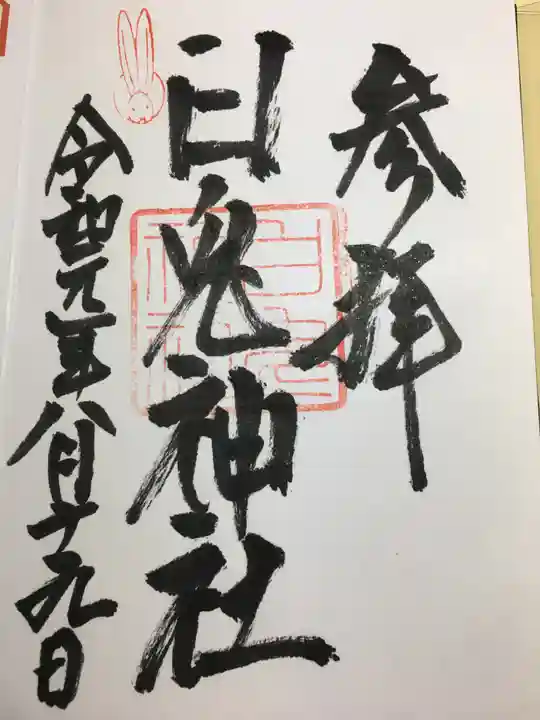 参拝
白兎神社
令和元年八月十九日